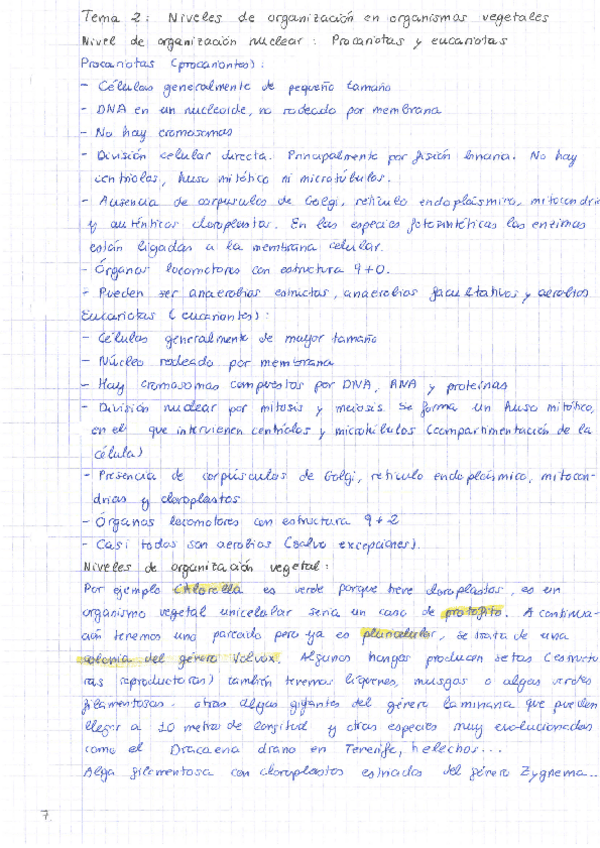 Tema 2: Niveles de organización en organismos vegetales
Nivel de organización nuclear: Procariotas y eucariotas
Procariotas (procariontes):
- Células generalmente de pequeño tamaño
- DNA en un nucleoide, no rodeado por membrana
- No hay cromosomas
- División celular directa. Principalmente por fisión binaria. No hay
centriolos, huso mitótico ni microtúbulos.
- Ausencia de corpusculos de Golgi, retículo endoplásmico, mitocondrias
y auténticos cloroplastos. En las especies fotosintéticas las enzimas
están ligadas a la membrana celular.
- Órganos locomotores con estructura 9+0.
- Pueden ser anaerobias estrictas, anaerobias facultativas y aerobias
Eucariotas (eucariontes):
- Células generalmente de mayor tamaño
- Núcleo rodeado por membrana
- Hay cromosomas compuestos por DNA, RNA y proteínas
- División nuclear por mitosis y meiosis. Se forma un huso mitótico,
en el que intervienen centriolos y microtúbulos (compartimentación de la
célula)
- Presencia de corpúsculos de Golgi, retículo endoplásmico, mitocon-
drias y cloroplastos
- Órganos locomotores con estructura 9+2
- Casi todos son aerobios (salvo excepciones).
Niveles de organización vegetal:
Por ejemplo Chlorella es verde porque tiene cloroplastos, es un
organismo vegetal unicelular sería un caso de protofito. A continua-
ción tenemos uno parecido pero ya es pluricelular, se trata de una
colonia del género Volvox. Algunos hongos producen setas (estructu
ras reproductoras) también tenemos líquenes, musgos o algas verdes
filamentosas. otras algas gigantes del género laminaria que pueden
llegar a 10 metros de longitud y otras especies muy evolucionadas
como el Dracaena drano en Tenerife, helechos...
Alga filamentosa con cloroplastos estriados del género Zygnema..
7